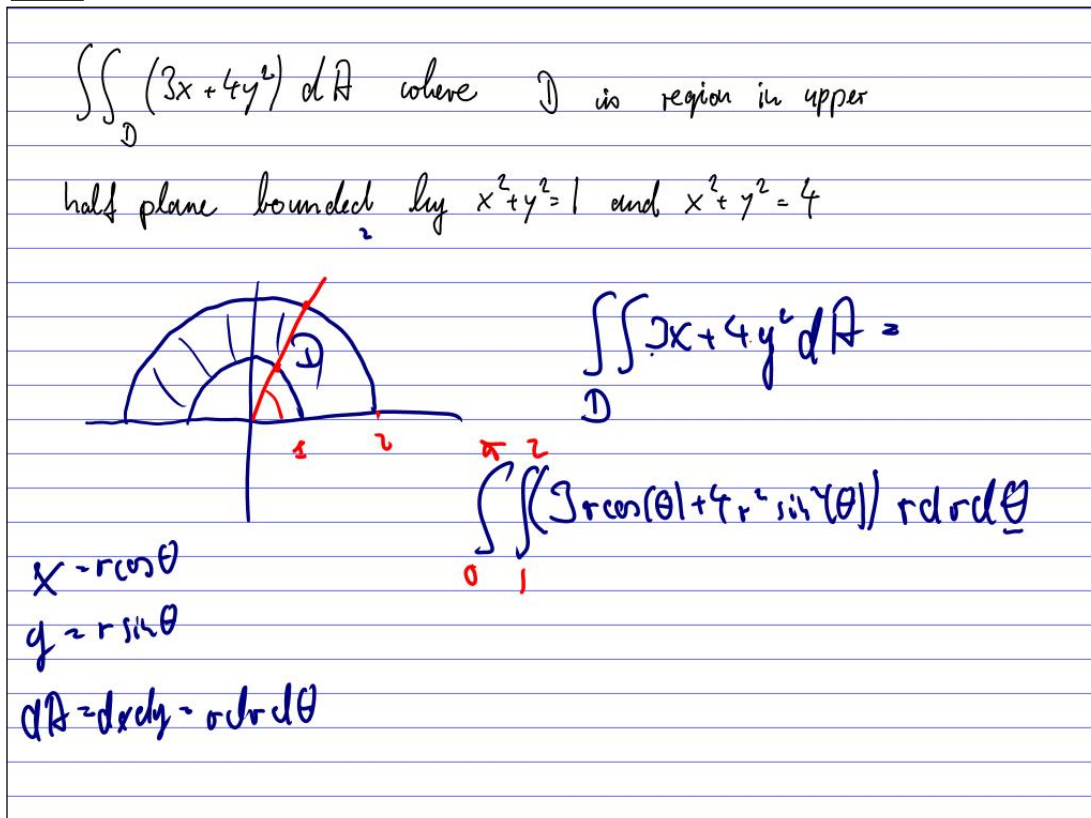 ∫∫_D (3x + 4y²) dA where D is region in upper
half plane bounded by x² + y² = 1 and x² + y² = 4
2
D
1 2
∫∫_D 3x + 4y² dA =
∫_0^π ∫_1^2 (3r cos(θ) + 4r² sin²(θ)) r dr dθ
x = r cos θ
y = r sin θ
dA = dx dy = r dr dθ